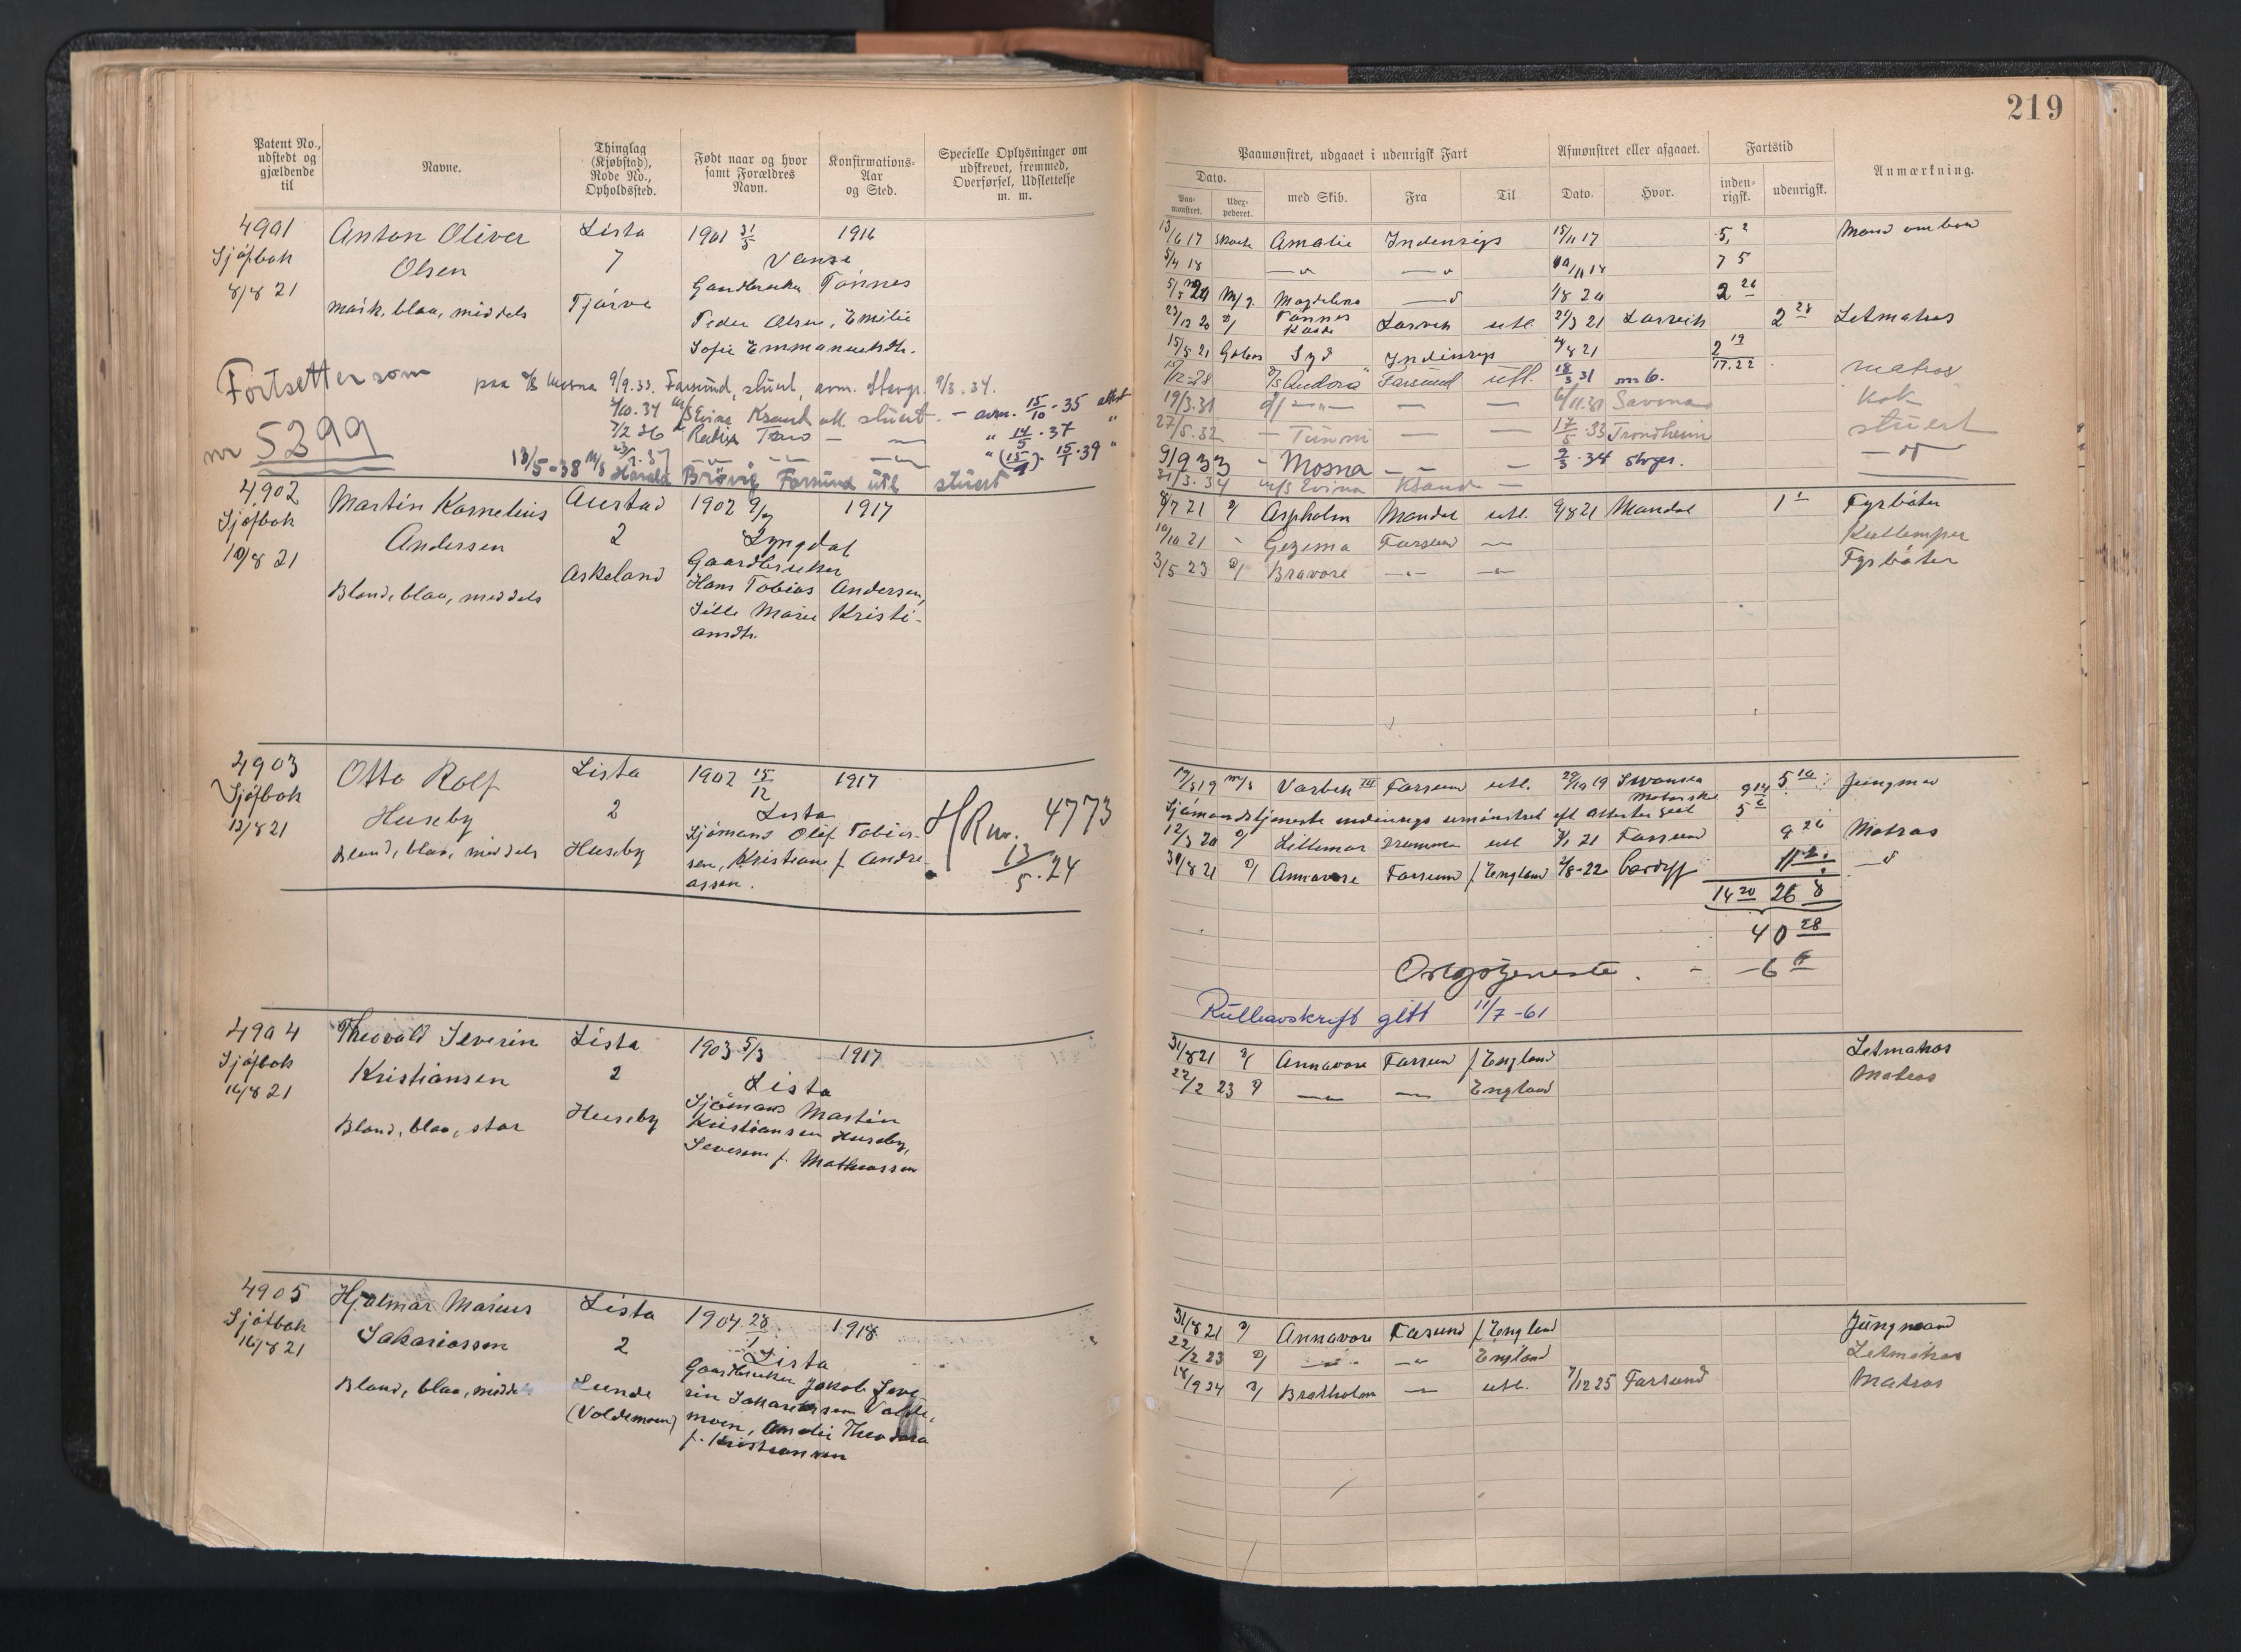 219
Patent No., udstedt og gjældende til
Navne.
Thinglag (Kjøbstad), Rode No., Opholdssted.
Født naar og hvor samt Forældres Navn.
Konfirmations-Aar og Sted.
Specielle Oplysninger om udskrevet, fremmed, Overførsel, Udslettelse m. m.
Paamønstret, udgaaet i udenrigsk Fart
Afmønstret eller afgaaet.
Fartstid
Anmærkning.
Dato.
Paa-mønstret.
Udex-pederet.
med Skib.
Fra
Til
Dato.
Hvor.
inden-rigsk.
udenrigsk.
4901 Anton Oliver Lista 1901 31/5 1916
Sjøfbok Olsen 7 Vanse
8/8 21 Gaardbruker Tønnes
mørk, blaa, middels Tjørve Peder Olsen, Emilie
Sofie Emmanuelsdtr.
Fortsetter som
nr 5399
paa Mosna 9/9.33. Farsund, stuert, avm. Stavgr. 9/3.34.
Evina Ksand utl. stuert - avm. 15/10.35 attest
7/2 36 - " 14/5.37 "
13/5-38 M/S Harald Brøvig Farsund utl stuert
13/6 17 Skøite Amalie Indenrigs 15/11 17 5, 2 Mand ombord
5/4 18 —"— —"— 7 5
M/g. Magdalena —"— 1/8 20 2 26
23/12 20 Tønnes Larvik utl. 21/3 21 Larvik 2 28 Letmatros
15/5 21 Syd Indenrigs 4/8 21 2 19
17.22
12-28 "Andora" Farsund utl. 18/3 31 matros
19/3.31 —"— — — 6/11.31 Savona Kok
27/5.32 - — — 17/5.33 Trondheim stuert
9/9 33 - Mosna - - — 9/3.34 —"—
31/3.34 M/S Evina Ksand —
4902 Martin Kornelius Austad 1902 9/7 1917
Sjøfbok Andersen 2 Lyngdal
10/8 21 Gaardbruker
Askeland Hans Tobias Andersen,
Blond, blaa, middels Sille Marie Kristi-
ansdtr.
8/7 21 Aspholm Mandal utl. 9/8 21 Mandal 1 1 Fyrbøter
10/10 21 - Gezema Farsund — Kullemper
3/5 23 Bravore —"— —"— Fyrbøter
4903 Otto Rolf Lista 1902 15/12 1917
Sjøfbok Huseby 2 Lista
13/8 21 Sjømand Olaf Tobias-
Blond, blaa, middels Huseby sen, Kristiane f. Andre-
assen.
HRnr. 4773
13/5.24
17/5 19 M/S Varbek III Farsund utl. 29/10 19 Swansea 5 10 Jungmand
Sjømandstjeneste indenrigs umønstret eft attester
12/3 20 Lillemor Drammen utl 21 Farsund 9 26 Matros
31/8 21 Annavore Farsund f. England 2/8-22 Cardiff —"—
14 20 26 8
40 28
Orlogstjeneste. - -6
Rulleavskrift gitt 11/7-61
4904 Theovald Severin Lista 1903 5/3 1917
Sjøfbok Kristiansen 2 Lista
16/8 21 Sjømand Martin
Blond, blaa, stor Huseby Kristiansen Huseby,
Severine f. Mathiassen
31/8 21 Annavore Farsund f. England Letmatros
22/2 23 —"— —"— England Matros
4905 Hjalmar Marius Lista 1904 28/1 1918
Sjøfbok Sakariassen 2 Lista
16/8 21 Gaardbruker Jakob Seve-
Blond, blaa, middels Lunde rin Sakariassen Volde-
(Voldemoen) moen, Amalie Theodora
f. Kristiansen
31/8 21 Annavore Farsund f. England Jungmand
22/2 23 —"— —"— England Letmatros
18/9 24 Bratholm —"— utl. 7/12 25 Farsund Matros